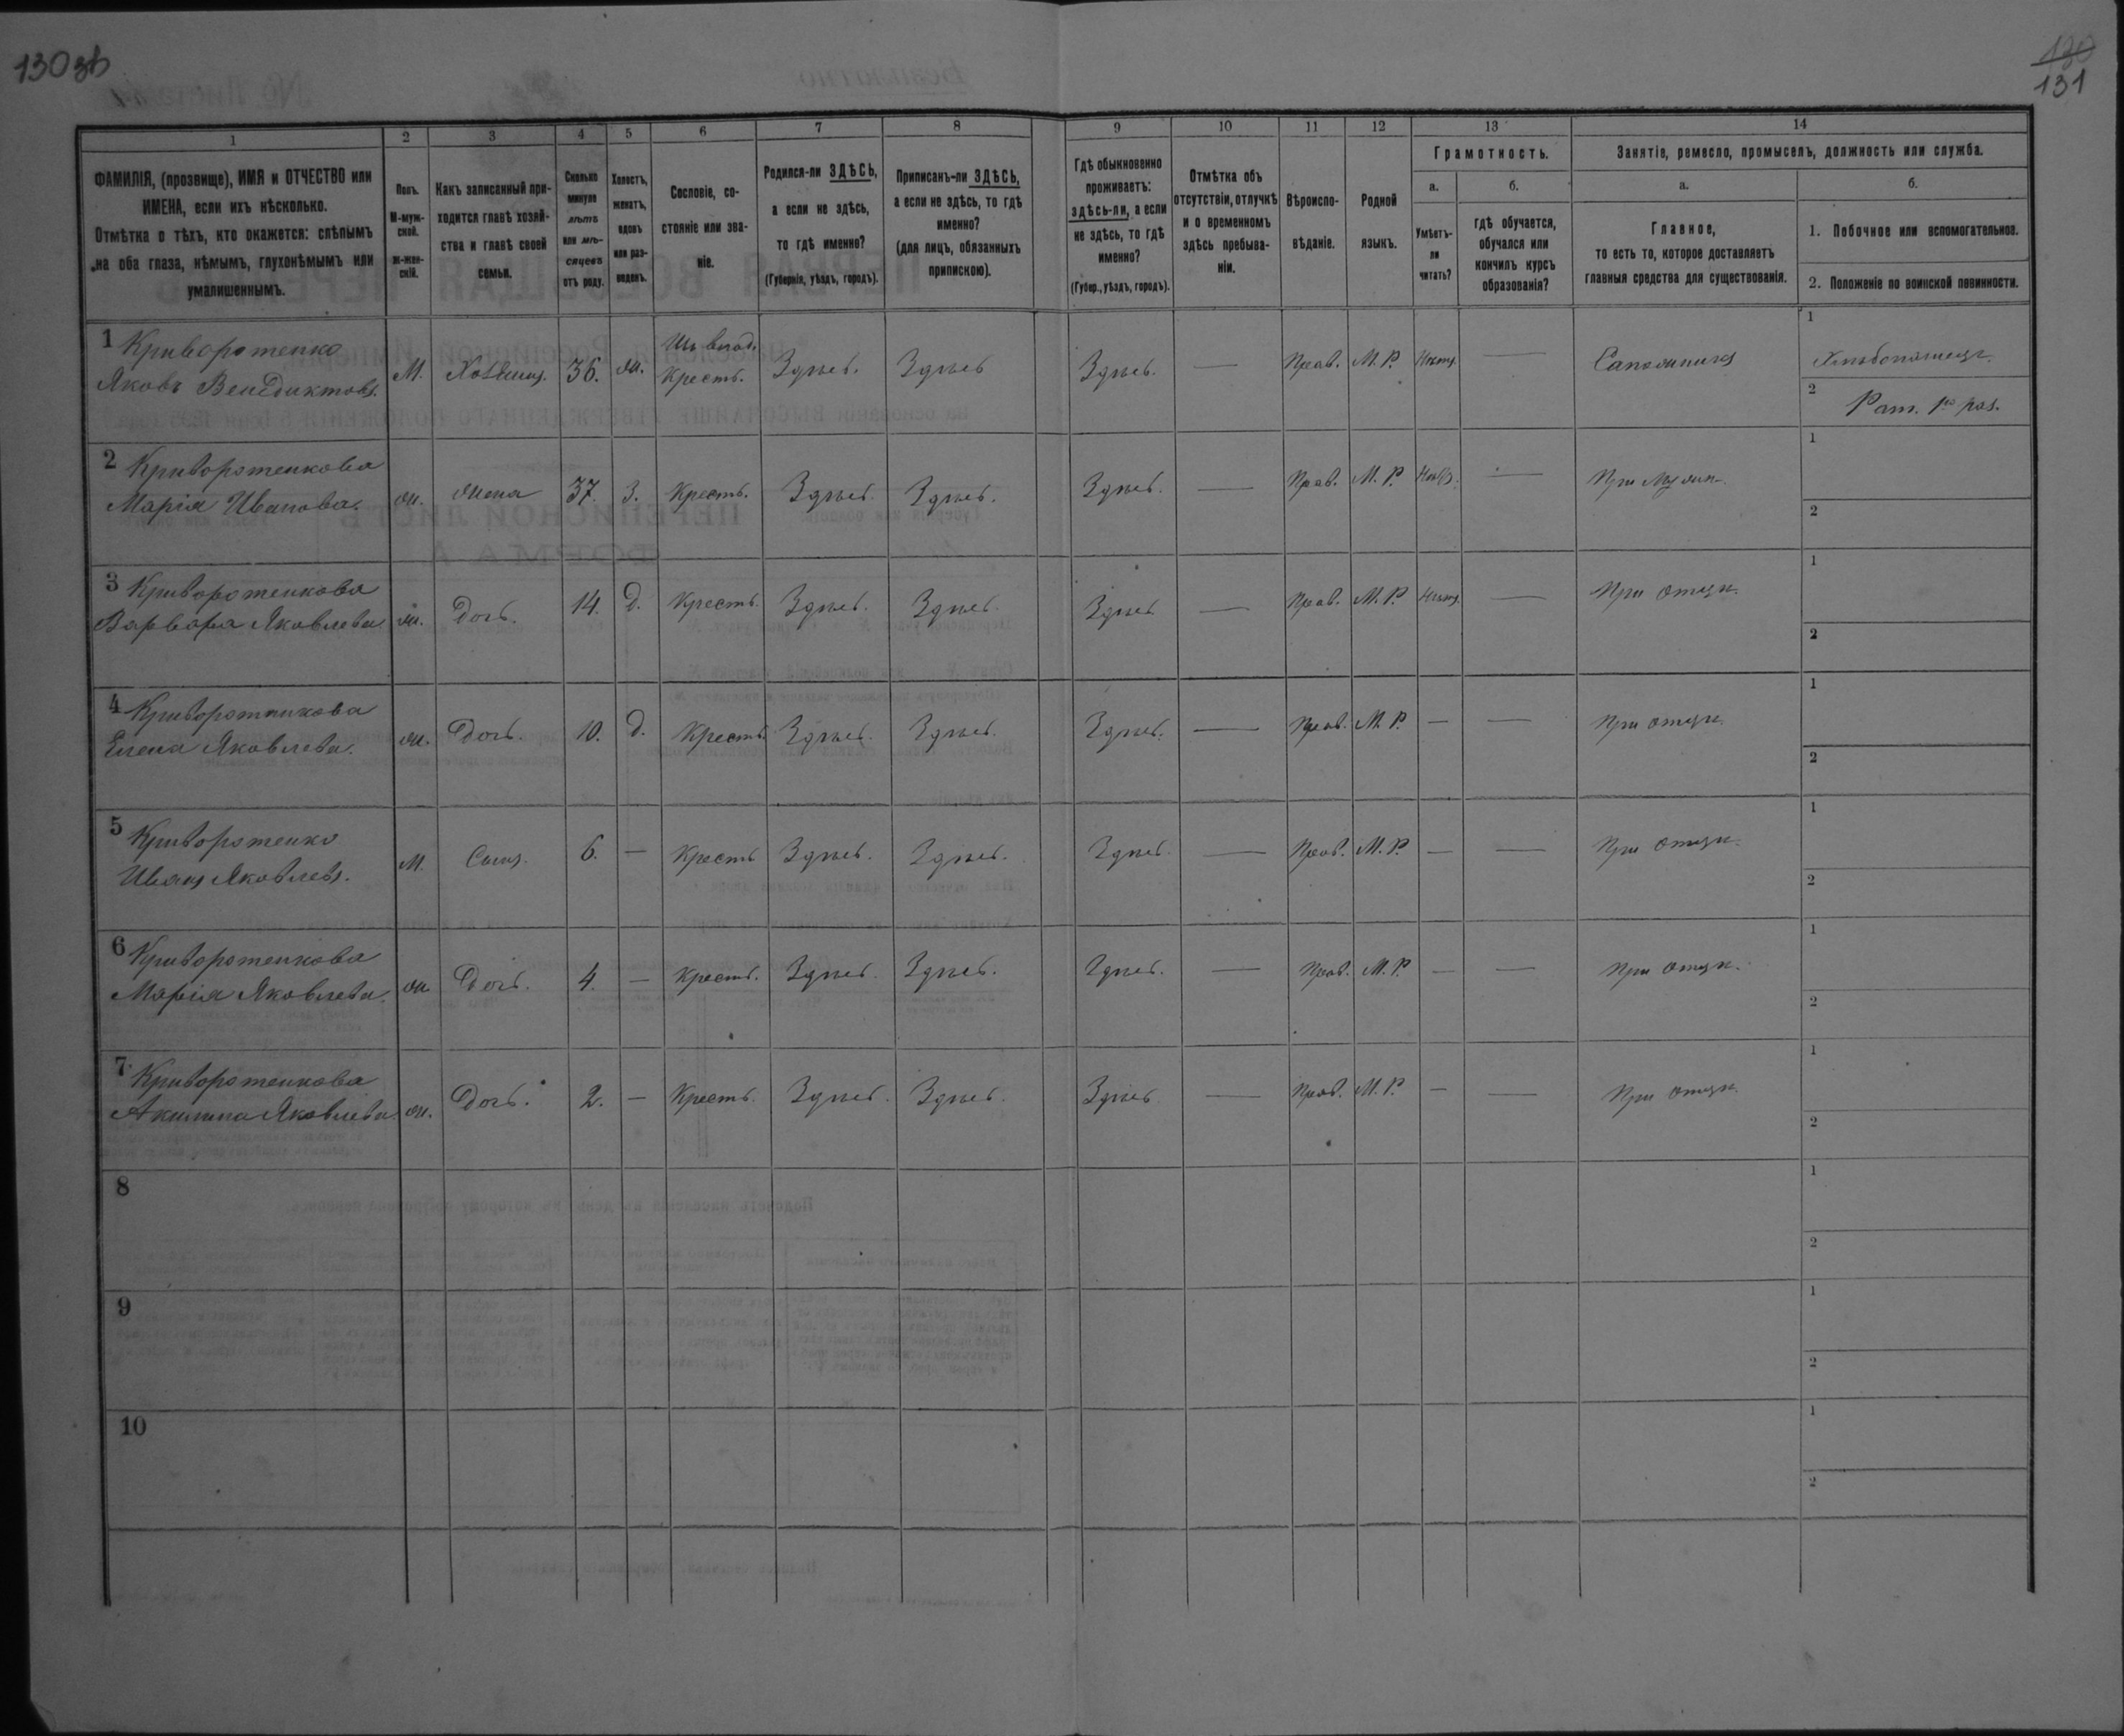 130 зв
130
131
1
2
3
4
5
6
7
8
9
10
11
12
13
14
ФАМИЛІЯ, (прозвище), ИМЯ и ОТЧЕСТВО или
ИМЕНА, если ихъ нѣсколько.
Отмѣтка о тѣхъ, кто окажется: слѣпымъ
на оба глаза, нѣмымъ, глухонѣмымъ или
умалишеннымъ.
Полъ.
М-муж-
ской.
Ж-жен-
скій.
Какъ записанный при-
ходится главѣ хозяй-
ства и главѣ своей
семьи.
Сколько
минуло
лѣтъ
или мѣ-
сяцевъ
отъ роду.
Холостъ,
женатъ,
вдовъ
или раз-
веденъ.
Сословіе, со-
стояніе или зва-
ніе.
Родился-ли ЗДѢСЬ,
а если не здѣсь,
то гдѣ именно?
(Губернія, уѣздъ, городъ).
Приписанъ-ли ЗДѢСЬ,
а если не здѣсь, то гдѣ
именно?
(для лицъ, обязанныхъ
припискою).
Гдѣ обыкновенно
проживаетъ:
здѣсь-ли, а если
не здѣсь, то гдѣ
именно?
(Губер., уѣздъ, городъ).
Отмѣтка объ
отсутствіи, отлучкѣ
и о временномъ
здѣсь пребыва-
ніи.
Вѣроиспо-
вѣданіе.
Родной
языкъ.
Грамотность.
а.
Умѣетъ-
ли
читать?
б.
гдѣ обучается,
обучался или
кончилъ курсъ
образованія?
Занятіе, ремесло, промыселъ, должность или служба.
а.
Главное,
то есть то, которое доставляетъ
главныя средства для существованія.
б.
1. Побочное или вспомогательное.
2. Положеніе по воинской повинности.
1 Криворотенко
Яковъ Венедиктовъ.
М. Хозяинъ. 36. ж. Крестъ. Здѣсь. Здѣсь Здѣсь. — Прав. М. Р. Нѣтъ — Сапожникъ
1 Хлѣбопашецъ.
2 Рат. 1го раз.
2 Криворотенкова
Марія Иванова.
ж. жена 37. З. Крестъ. Здѣсь. Здѣсь. Здѣсь. — Прав. М. Р. — При Мужѣ.
1
2
3 Криворотенкова
Варвара Яковлева.
ж. Дочь. 14. д. Крестъ. Здѣсь. Здѣсь. Здѣсь — Прав. М. Р. Нѣтъ. — При отцѣ.
1
2
4 Криворотенкова
Елена Яковлева.
ж. Дочь. 10. д. Крестъ. Здѣсь. Здѣсь. Здѣсь. — Прав. М. Р. — — При отцѣ.
1
2
5 Криворотенко
Иванъ Яковлевъ.
М. Сынъ. 6. — Крестъ Здѣсь. Здѣсь. Здѣсь. — Прав. М. Р. — — При отцѣ.
1
2
6 Криворотенкова
Марія Яковлева.
ж Дочь. 4. — Крестъ. Здѣсь. Здѣсь. Здѣсь. — Прав. М. Р. — — При отцѣ.
1
2
7 Криворотенкова
Акилина Яковлева.
ж. Дочь. 2. — Крестъ. Здѣсь. Здѣсь. Здѣсь. — Прав. М. Р. — — При отцѣ.
1
2
8
1
2
9
1
2
10
1
2